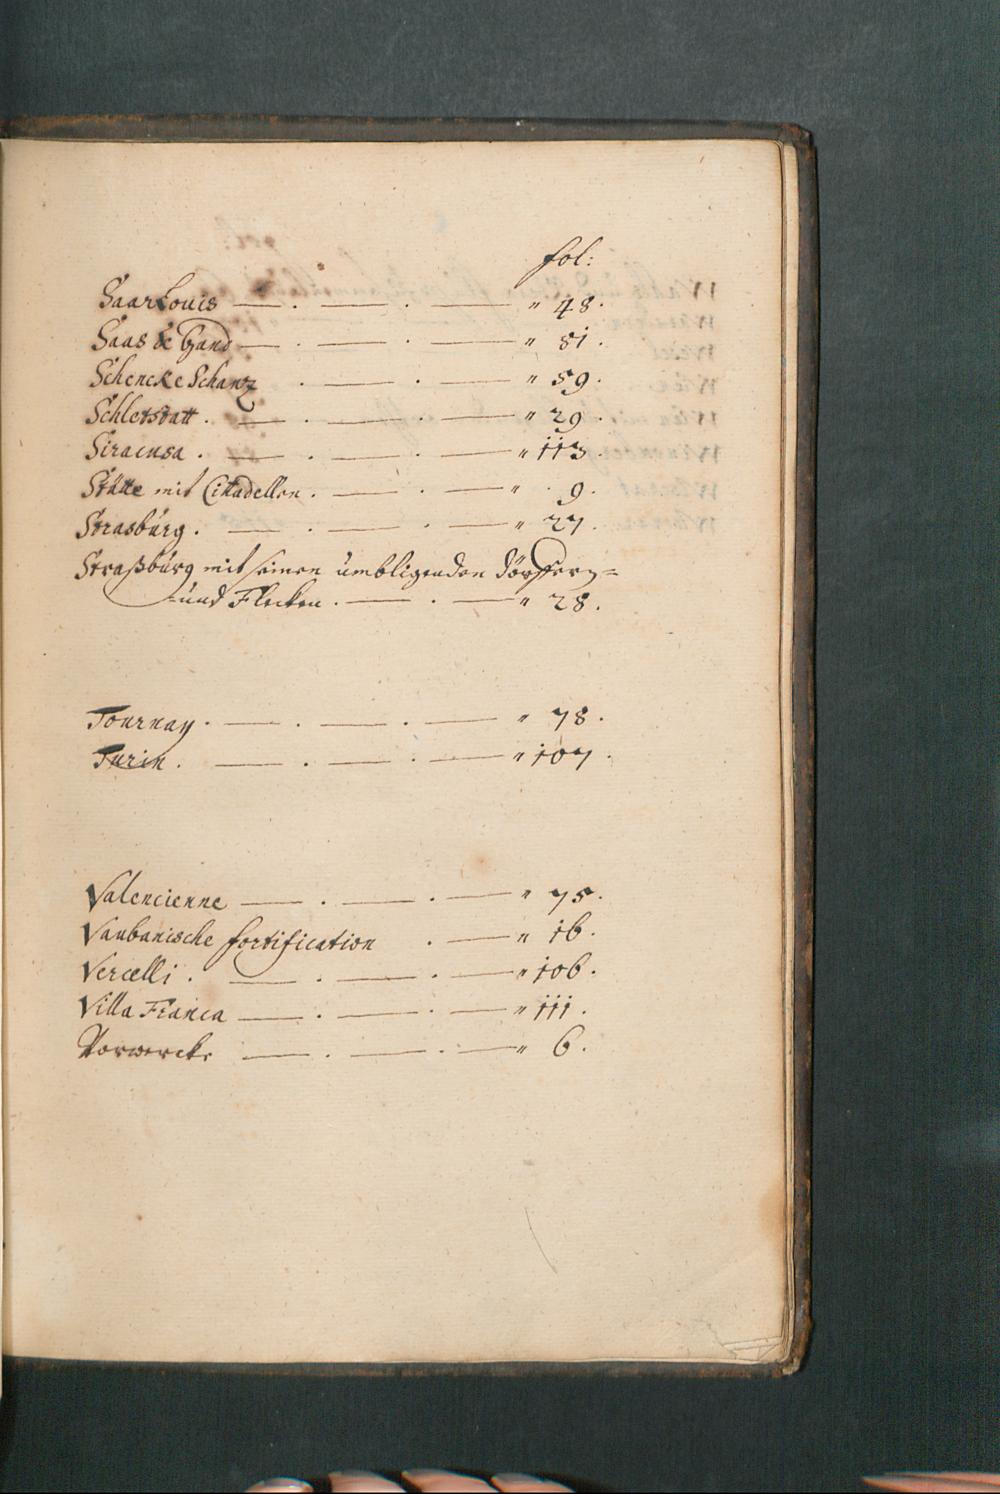 fol:
SaarLouis — . — . — " 48.
Saas de Gand — . — . — " 81.
Schencke Schantz . — . — " 59.
Schletstatt . — . — . — " 29.
Siracusa . — . — . — " 113.
Stätte mit Citadellen . — . — " 9.
Strasbúrg . — . — . — " 27.
Straßbúrg mit seinen úmbligenden Dörffern=
und Flecken . — . — " 28.
Tournay . — . — . — " 78.
Turin . — . — . — " 107.
Valencienne — . — . — " 75.
Vaubanische fortification . — " 16.
Vercelli . — . — . — " 106.
Villa Franca — . — . — " 111.
Vorwercke — . — . — " 6.